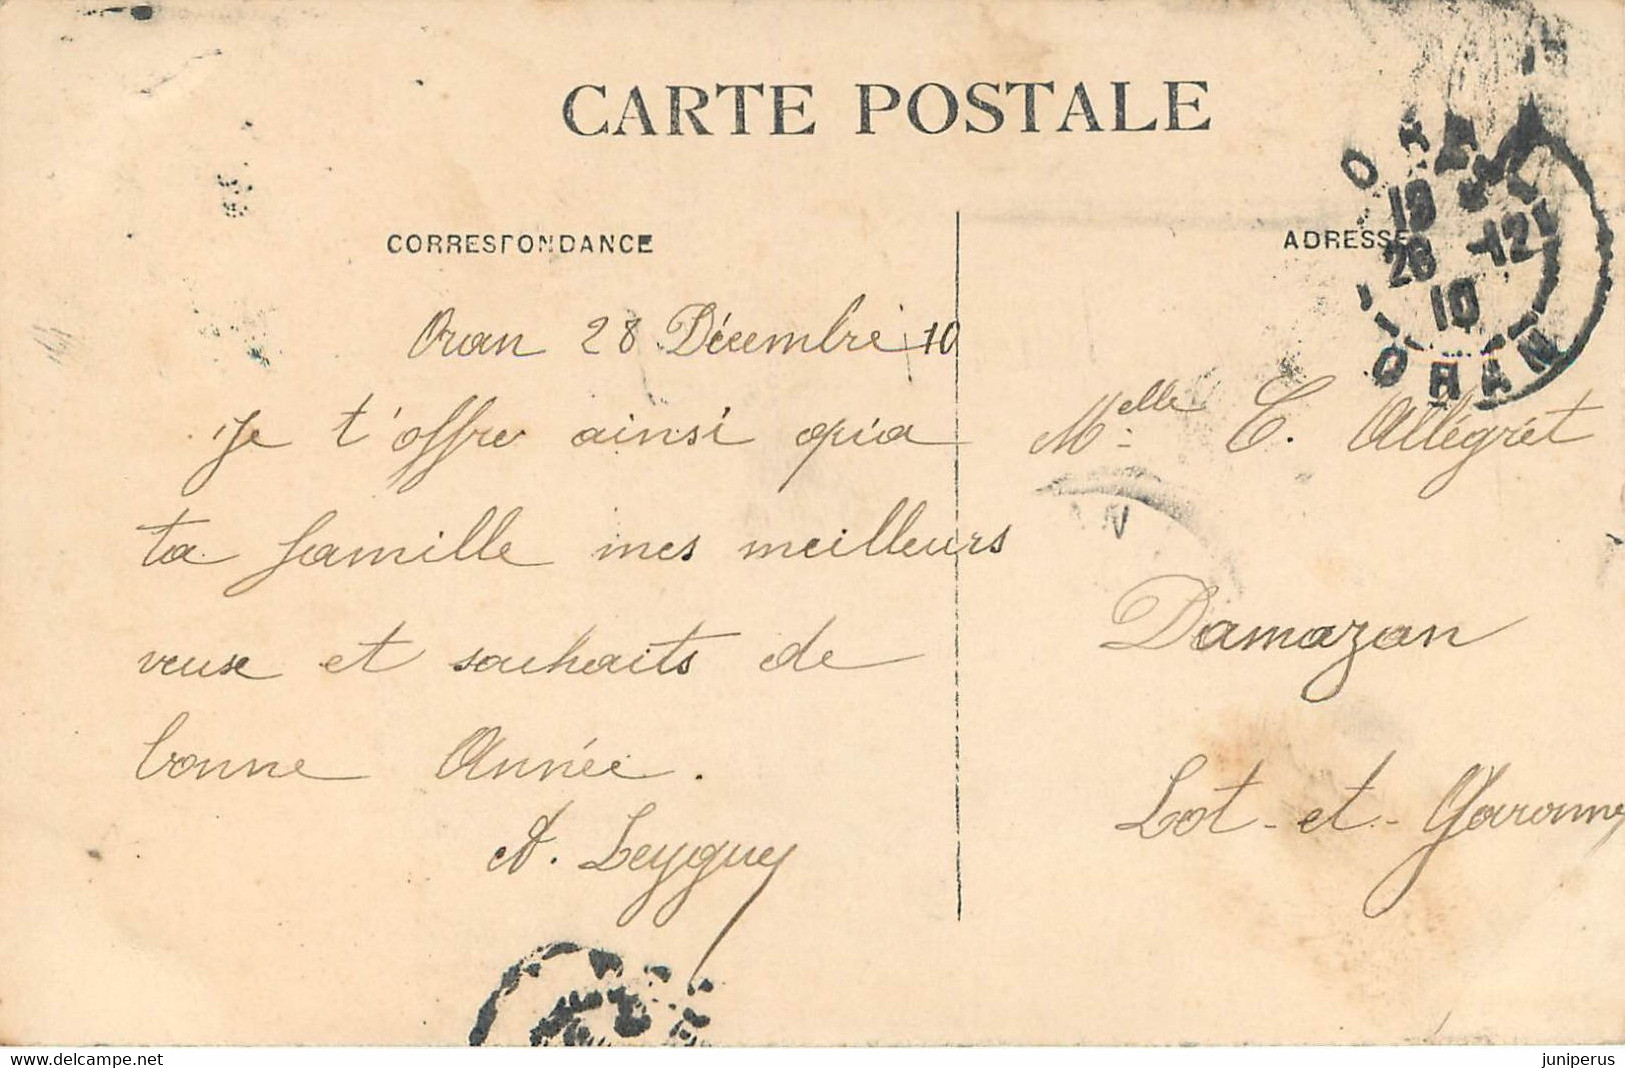 CARTE POSTALE
CORRESPONDANCE
ADRESSE
ORAN
28 -12
10
ORAN
Oran 28 Décembre 10
Je t'offre ainsi qu'a
ta famille mes meilleurs
veux et souhaits de
bonne Année.
A. Leyguey
Melle E. Allégret
Damazan
Lot-et-Garonne
juniperus